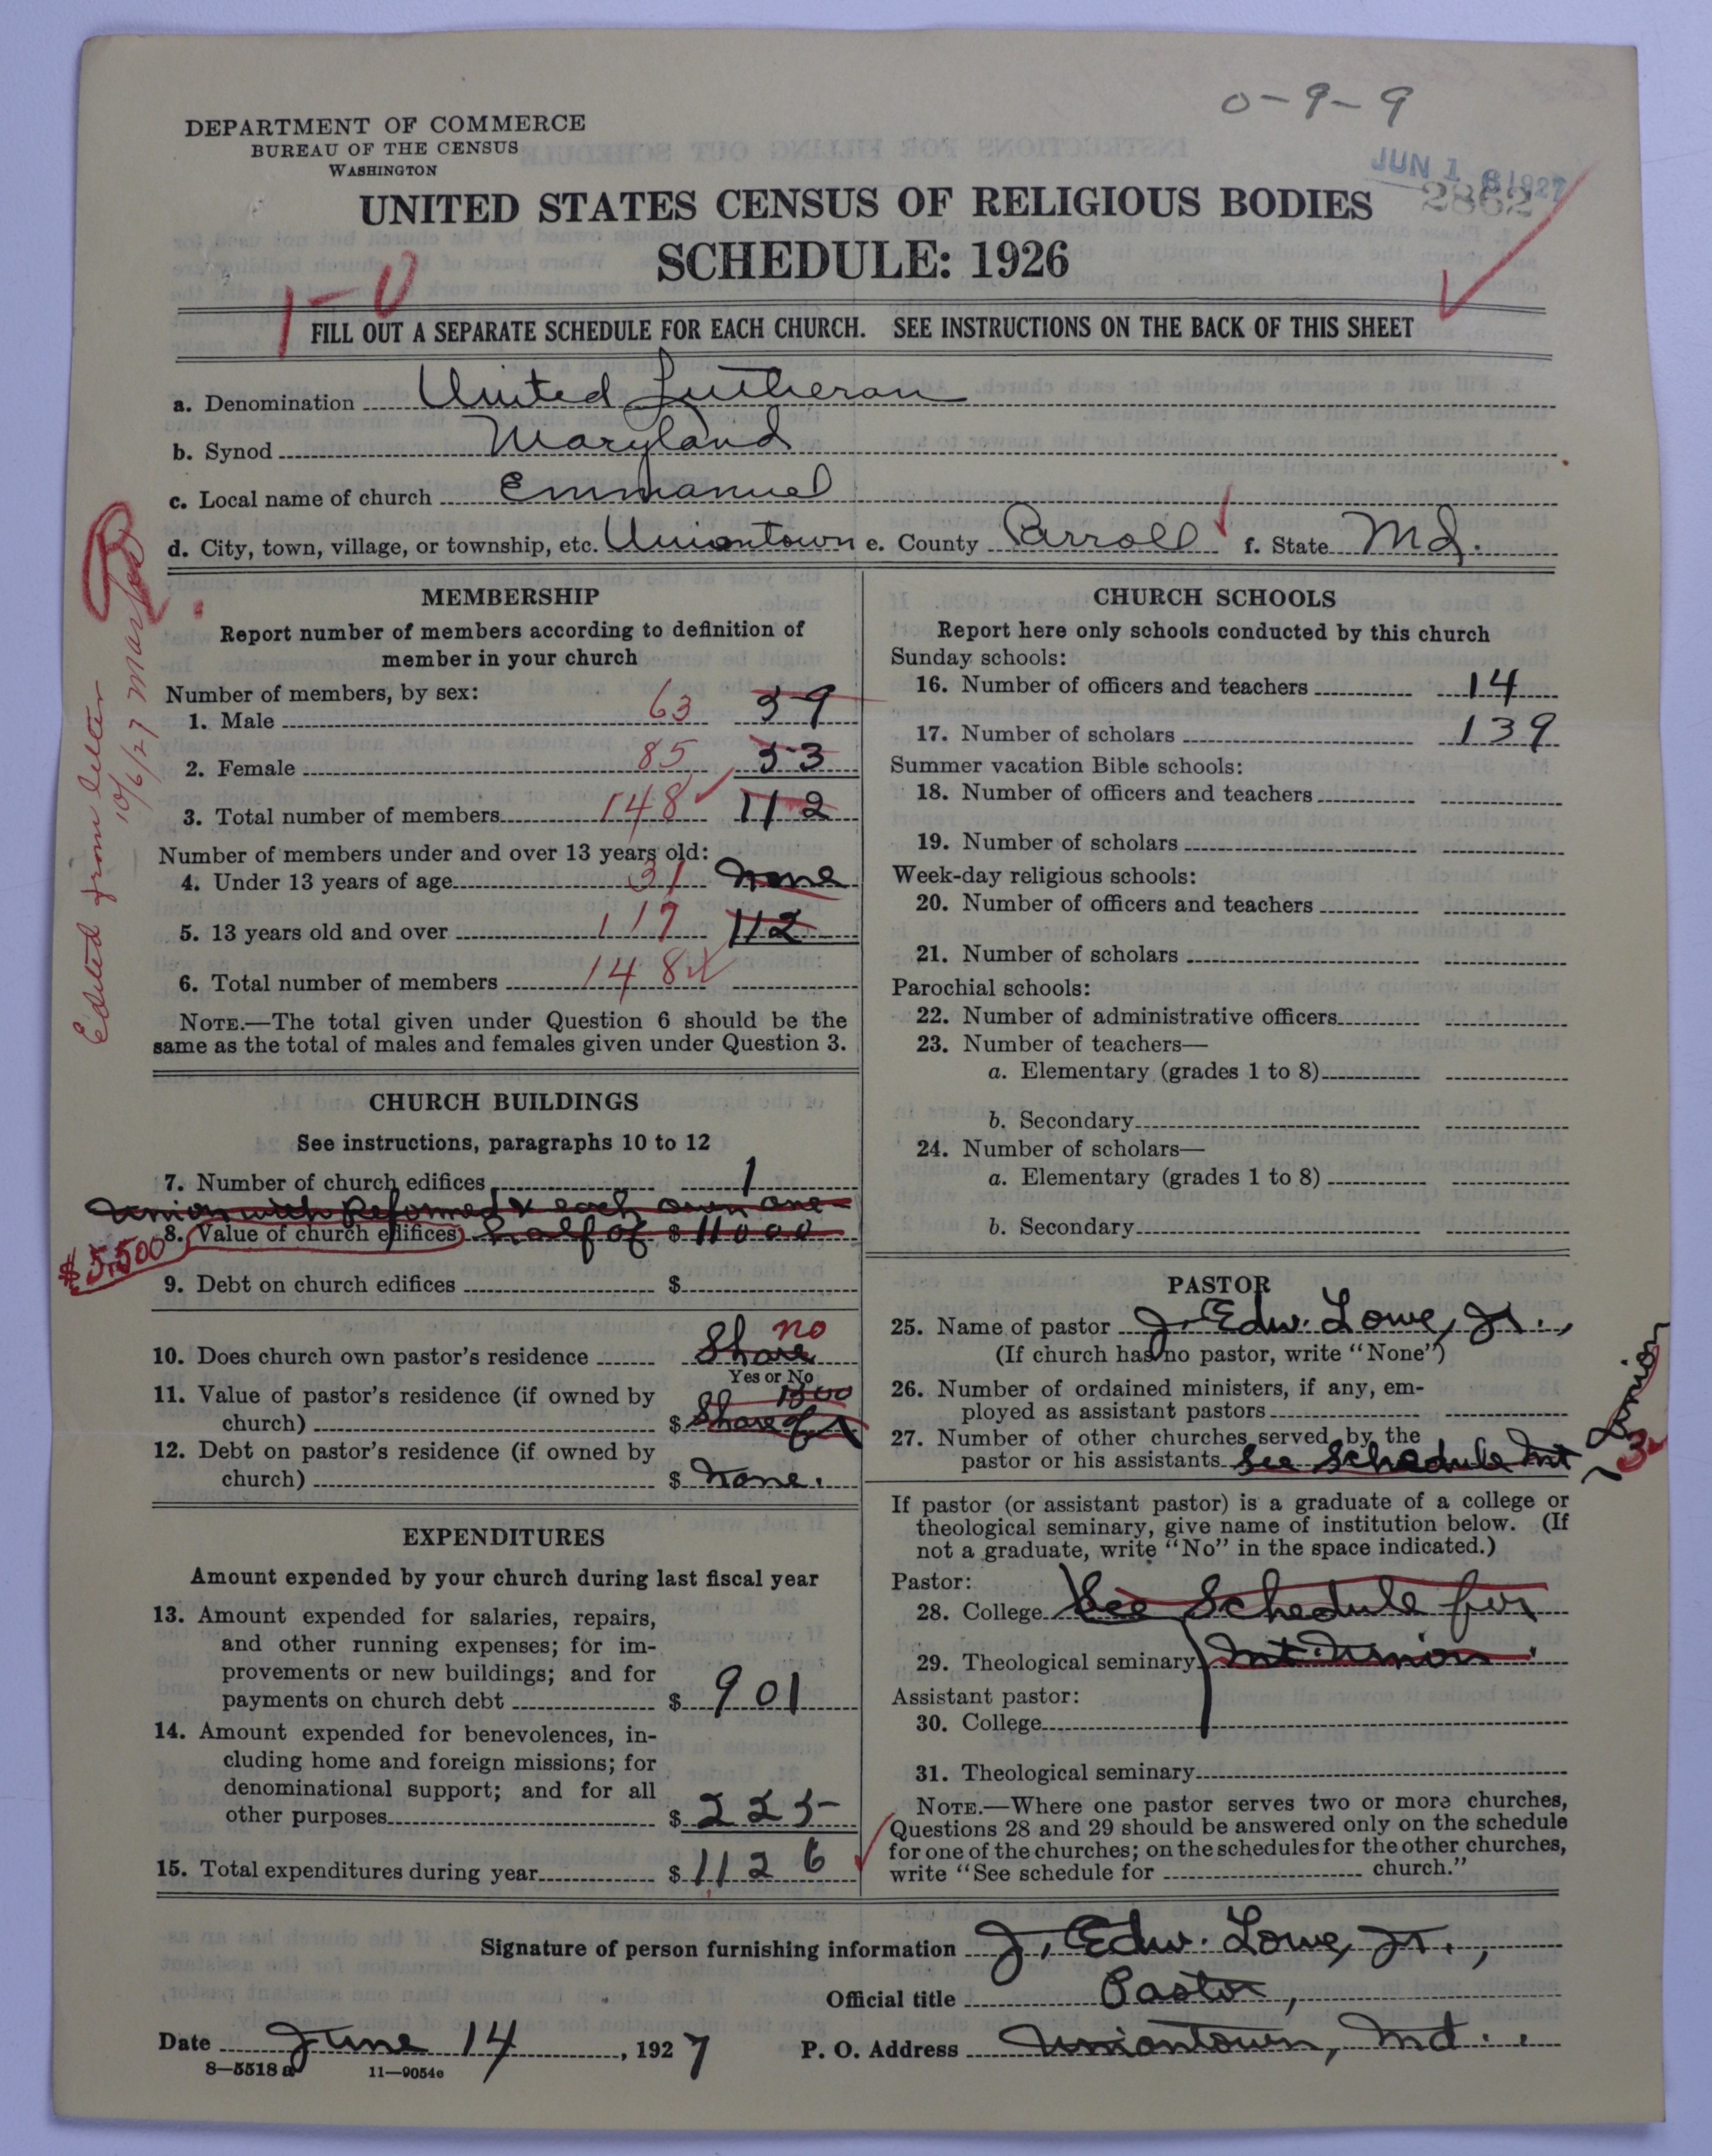 0-9-9
DEPARTMENT OF COMMERCE
BUREAU OF THE CENSUS
WASHINGTON
JUN 16 1927
2862
UNITED STATES CENSUS OF RELIGIOUS BODIES
SCHEDULE: 1926
1-0
FILL OUT A SEPARATE SCHEDULE FOR EACH CHURCH. SEE INSTRUCTIONS ON THE BACK OF THIS SHEET
a. Denomination United Lutheran
b. Synod Maryland
c. Local name of church Emmanuel
d. City, town, village, or township, etc. Uniontown e. County Carroll f. State Md.
Edited from letter
10/6/27
MEMBERSHIP
Report number of members according to definition of
member in your church
Number of members, by sex:
1. Male 63 59
2. Female 85 53
3. Total number of members 148 112
Number of members under and over 13 years old:
4. Under 13 years of age 31 None
5. 13 years old and over 117 112
6. Total number of members 148
NOTE.—The total given under Question 6 should be the
same as the total of males and females given under Question 3.
CHURCH BUILDINGS
See instructions, paragraphs 10 to 12
7. Number of church edifices 1
Union with Reformed & each own one
8. Value of church edifices half of $ 11000
$5,500
9. Debt on church edifices $
10. Does church own pastor's residence Share no
Yes or No
11. Value of pastor's residence (if owned by
church) $ Share of
12. Debt on pastor's residence (if owned by
church) $ None.
EXPENDITURES
Amount expended by your church during last fiscal year
13. Amount expended for salaries, repairs,
and other running expenses; for im-
provements or new buildings; and for
payments on church debt $ 901
14. Amount expended for benevolences, in-
cluding home and foreign missions; for
denominational support; and for all
other purposes $ 225
15. Total expenditures during year $ 1126
CHURCH SCHOOLS
Report here only schools conducted by this church
Sunday schools:
16. Number of officers and teachers 14
17. Number of scholars 139
Summer vacation Bible schools:
18. Number of officers and teachers
19. Number of scholars
Week-day religious schools:
20. Number of officers and teachers
21. Number of scholars
Parochial schools:
22. Number of administrative officers
23. Number of teachers—
a. Elementary (grades 1 to 8)
b. Secondary
24. Number of scholars—
a. Elementary (grades 1 to 8)
b. Secondary
PASTOR
25. Name of pastor J. Edw. Lowe, Jr.,
(If church has no pastor, write "None")
26. Number of ordained ministers, if any, em-
ployed as assistant pastors
27. Number of other churches served by the
pastor or his assistants See Schedule Mt Union
3
If pastor (or assistant pastor) is a graduate of a college or
theological seminary, give name of institution below. (If
not a graduate, write "No" in the space indicated.)
Pastor:
28. College See Schedule for
29. Theological seminary Mt. Union.
Assistant pastor:
30. College
31. Theological seminary
NOTE.—Where one pastor serves two or more churches,
Questions 28 and 29 should be answered only on the schedule
for one of the churches; on the schedules for the other churches,
write "See schedule for church."
Signature of person furnishing information J. Edw. Lowe, Jr.,
Official title Pastor,
Date June 14, 1927 P. O. Address Uniontown, Md.
8—5518 a 11—9054e